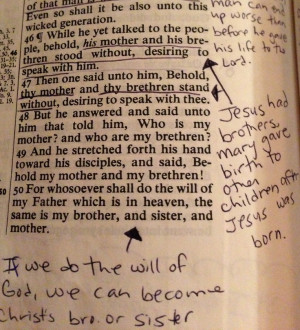 of that man
Even so shall it be also unto this
wicked generation.
46 ¶ While he yet talked to the peo-
ple, behold, his mother and his bre-
thren stood without, desiring to
speak with him.
47 Then one said unto him, Behold,
thy mother and thy brethren stand
without, desiring to speak with thee.
48 But he answered and said unto
him that told him, Who is my
mother? and who are my brethren?
49 And he stretched forth his hand
toward his disciples, and said, Be-
hold my mother and my brethren!
50 For whosoever shall do the will of
my Father which is in heaven, the
same is my brother, and sister, and
mother.
man can end
up worse than
before he gave
his life to the
Lord.
Jesus had
brothers,
mary gave
birth to
other
children after
Jesus was
born.
If we do the will of
God, we can become
Christs bro. or sister